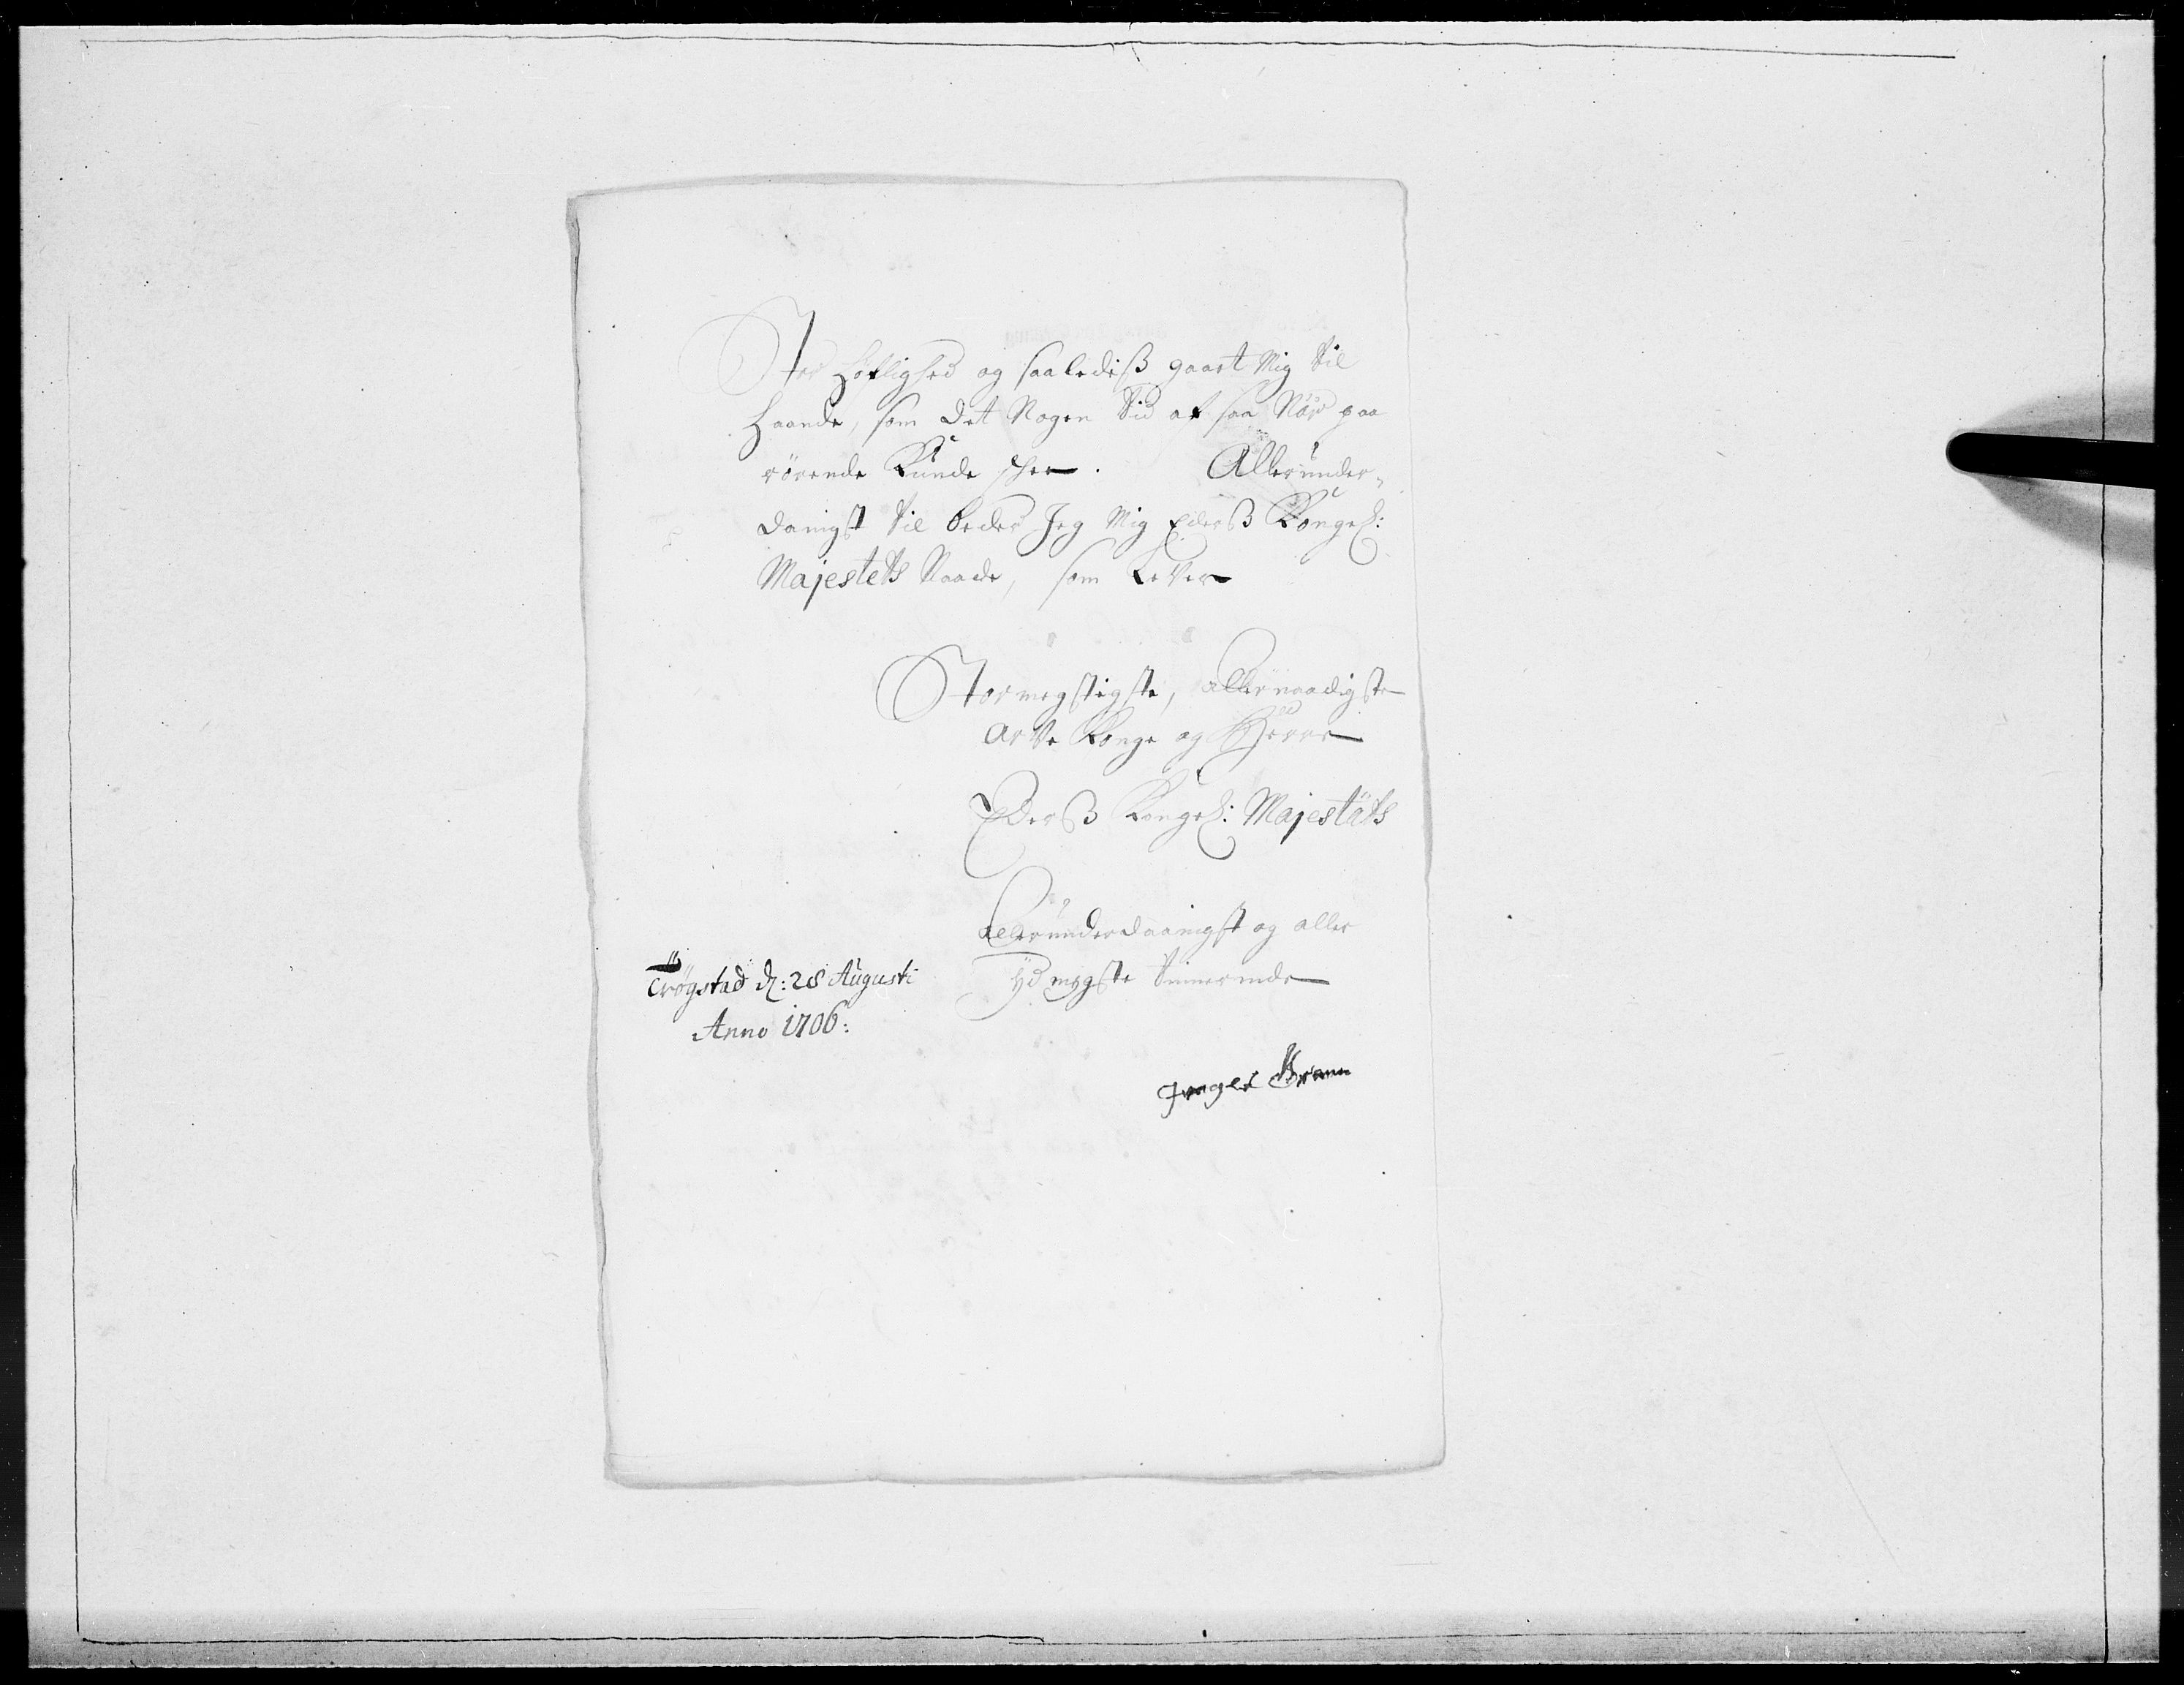 Stor Höflighed og saaledeß gaaet Mig til
haande, som det Nogen Tid af saa Nær paa
rörende Kunde schee. Allerunder„
danigst til beder Jeg Mig Ederß Kongel:
Majestets Naade, som lever
Stormegtigste, allernaadigste
Arve Konge og Herre
Ederß Kongel: Majestäts
Allerunderdaanigst og aller
ÿdmygste Tienerinde
Trögstad d: 28 Augusti
Anno 1706: